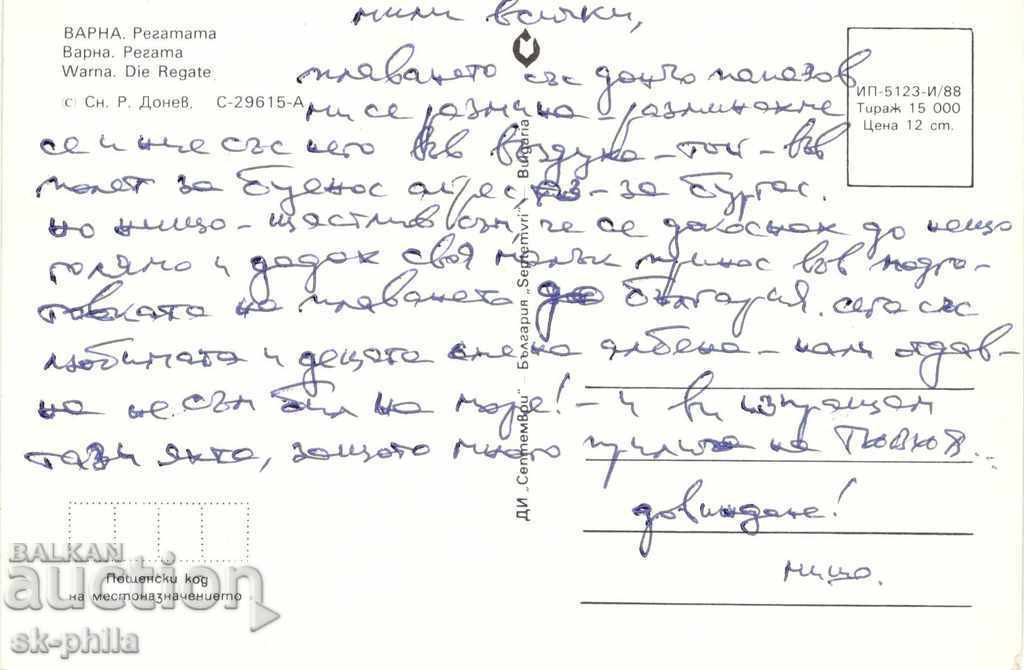 мили всички,
ВАРНА. Регатата
Варна. Регата
Warna. Die Regate
(c) Сн. Р. Донев, С-29615-А
ИП-5123-И/88
Тираж 15 000
Цена 12 ст.
плаването със дончо папазов
ми се размина - разминахме
се и ние със него във въздуха - той - във
полет за буенос айрес, аз - за бургас.
но нищо - щастлив съм, че се докоснах до нещо
голямо и дадох своя малък принос във подго-
товката на плаването до българия. сега със
любимата и децата сме на албена - нали отдав-
на не съм бил на море! - и ви изпращам
тази яхта, защото много прилича на
довиждане!
мишо.
ДИ „Септември" - България „Septemvri" - Bulgaria
Пощенски код
на местоназначението
BALKAN
auction
sk-philla